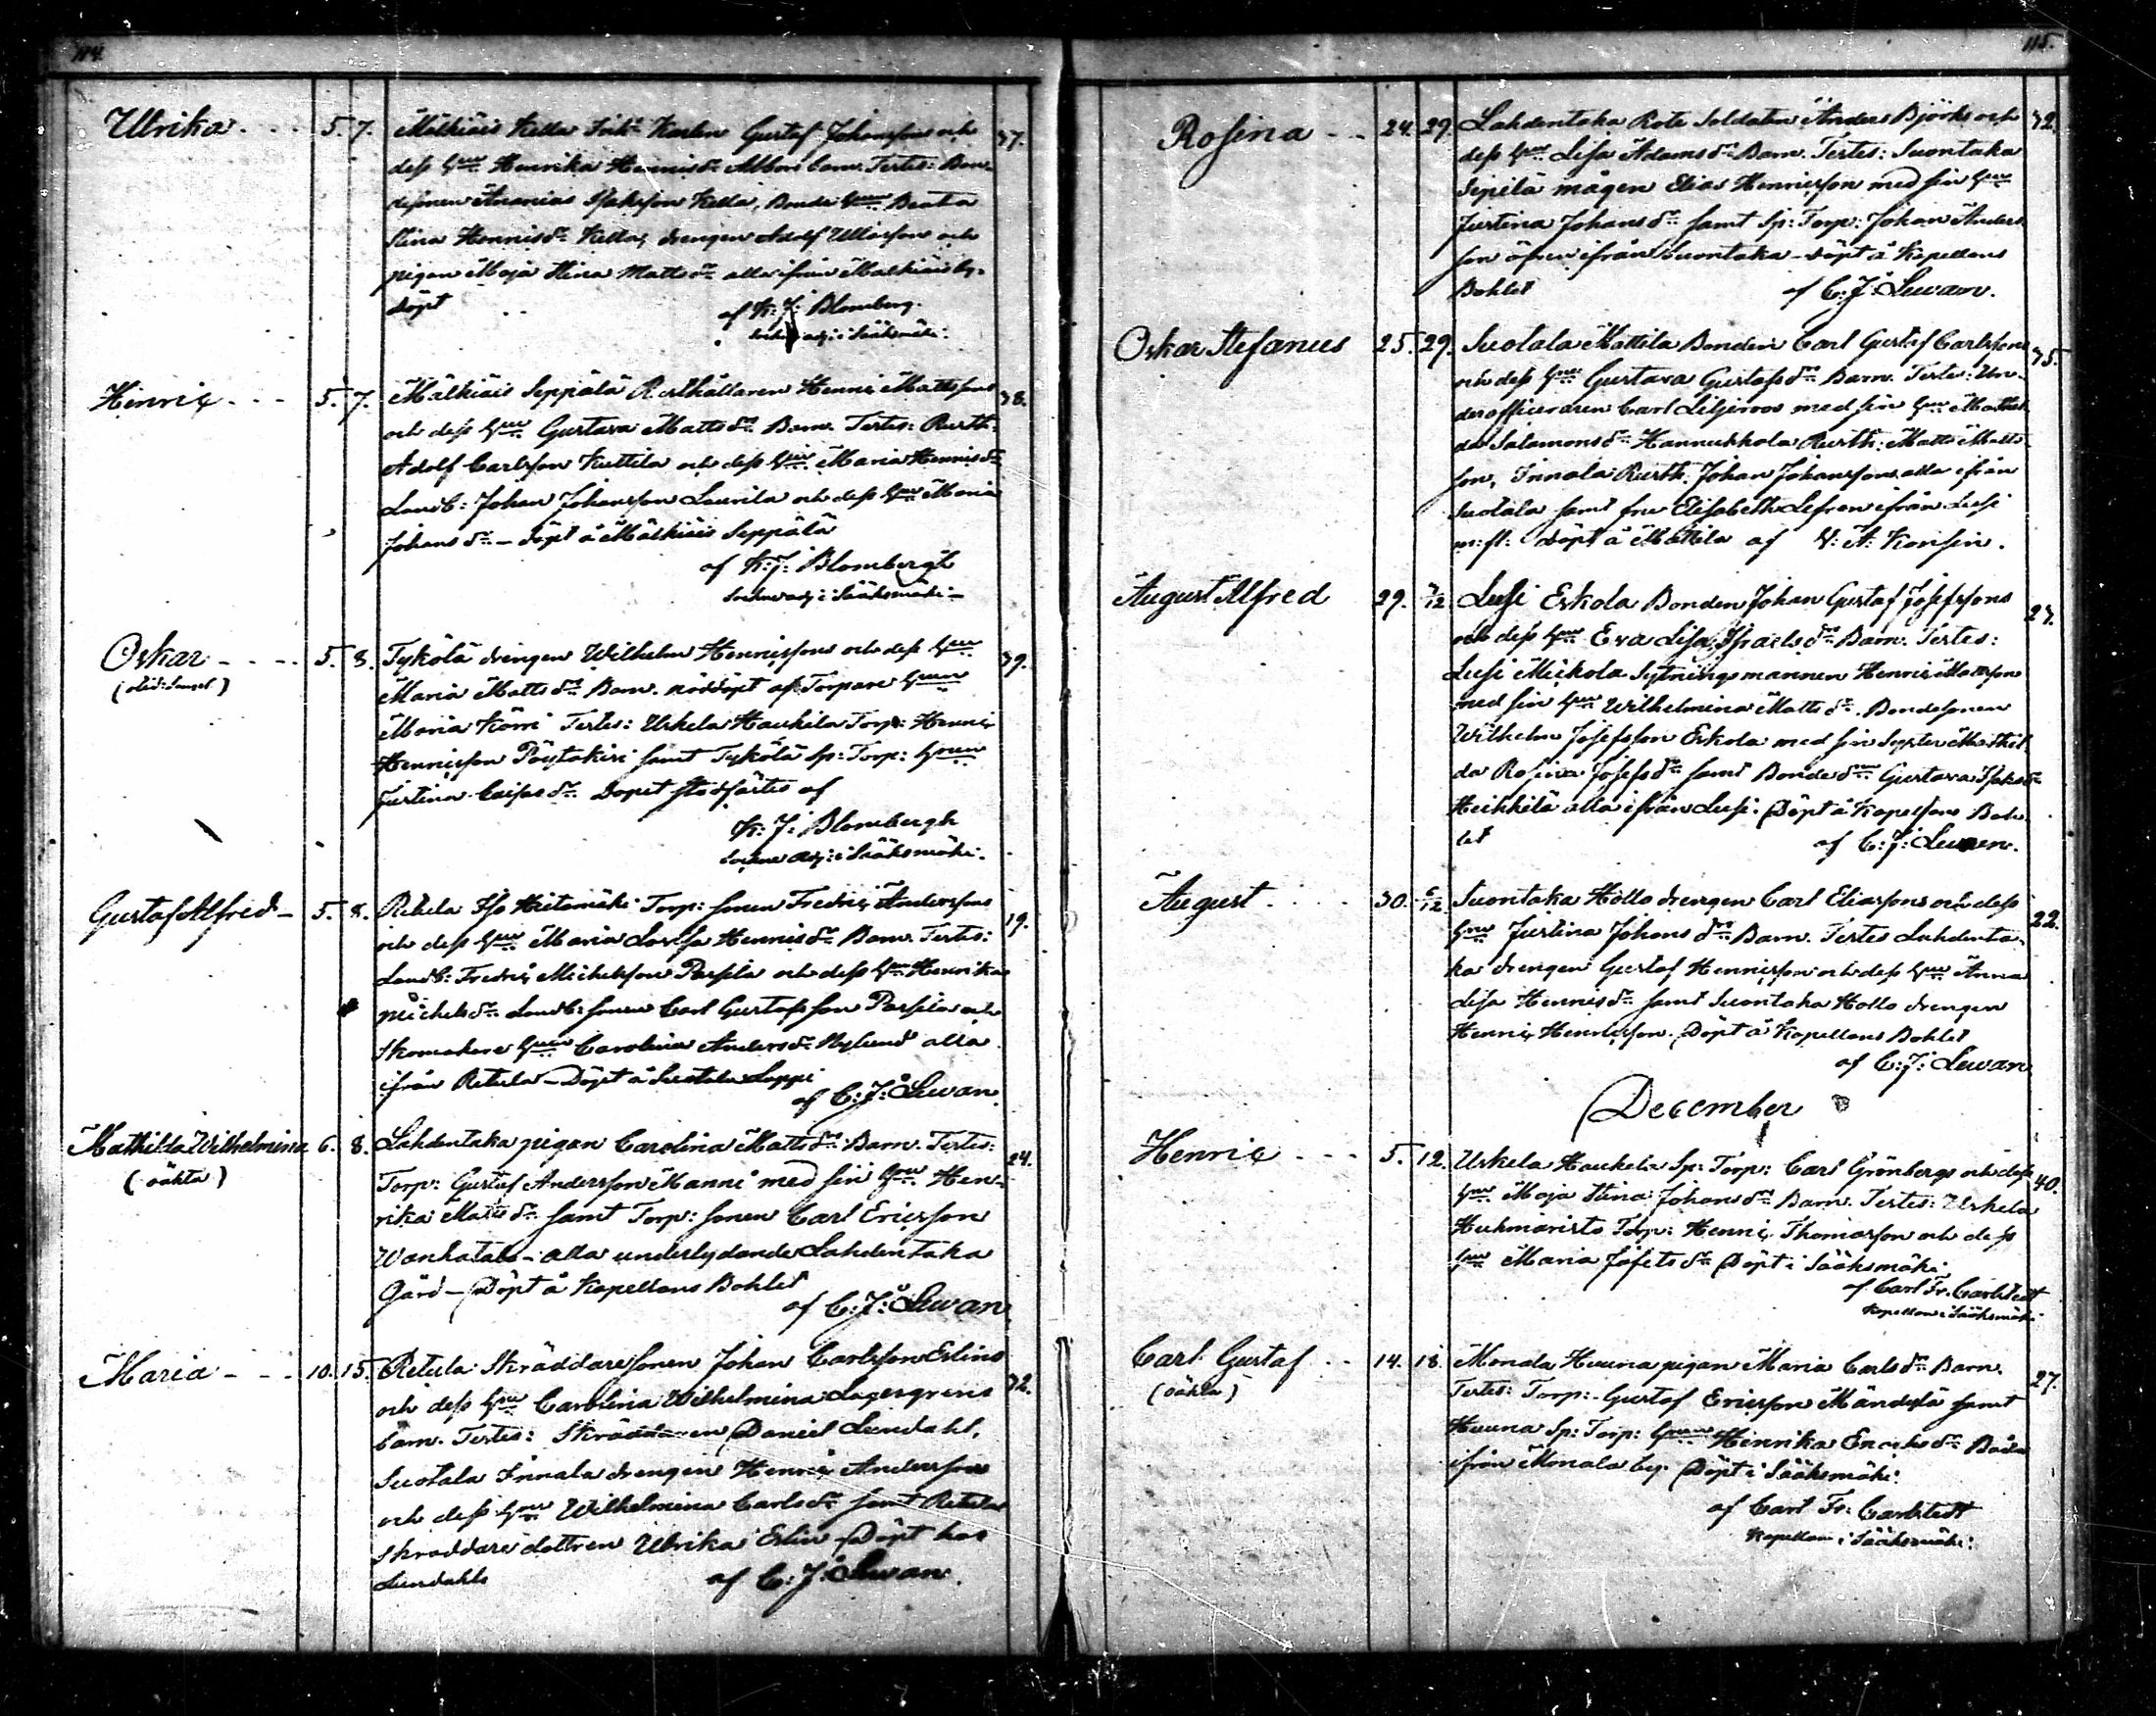 114.
Ulrika. - - 5. 7. Mälkiäis Kella Inh: Karlen Gustaf Johansson och 37.
dess Hru Henrika Henricsdr Abbors barn. Testes: Bon-
desonen Ananias Isaksson Kella, Bonde Hru Beata
Stina Henricsdr Kella, drengen Adolf Ullasson och
pigan Maja Stina Mattsdr alla ifrån Mälkiäis by.
döpt af K: J: Blomberg.
Sockne adj: i Sääksmäki.
Henric - - - 5. 7. Mälkiäis Seppälä Rusthållaren Henric Mattssons 38.
och dess Hru Gustava Mattsdr Barn. Testes: Rusth:
Adolf Carlsson Kuttila och dess Hru Maria Henricsdr
Landb: Johan Johansson Laurila och dess Hru Maria
Johansdr – Döpt å Mälkiäis Seppälä
af K: J: Blombergh
Sockne adj: i Sääksmäki –
Oskar - - - - 5. 8. Tykölä drengen Wilhelm Henricssons och dess Hru 39.
Maria Mattsdr Barn. nöddöpt af Torpare Hrun
Maria Körri Testes: Uskela Haukila Torp: Henric
Henricsson Pöytäkivi samt Tykölä Sp: Torp: Hrun
Justina Caisasdr Dopet stadfästes af
K: J: Blombergh
Sockne adj: i Sääksmäki.
Gustaf Alfred – 5. 8. Retula Iso Hietamäki Torp: sonen Fredric Anderssons 19.
och dess Hru Maria Lovisa Henricsdr Barn. Testes:
Landb: Fredric Michelsson Passila och dess Hru Henrika
Michelsdr Landb: sonen Carl Gustafsson Passila och
Skomakare Hrun Carolina Andersdr Nylund alla
ifrån Retula – Döpt å Suotala Loppi
af C: J: Lewan.
Mathilda Wilhelmina 6. 8. Lahdentaka pigan Carolina Mattsdrs Barn. Testes: 24.
(oäkta) Torp: Gustaf Andersson Manni med sin Hru Hen-
rika Mattsdr samt Torp: sonen Carl Ericsson
Wanhatalo – alla underlydande Lahdentaka
Gård – Döpt å Kapellans Bohlet
af C: J: Lewan
Maria - - - 10. 15. Retula Skräddaresonen Johan Carlsson Eslins 32.
och dess Hru Carolina Wilhelmina Lagergrens
barn. Testes: Skräddaren Daniel Lundahl,
Suotala Innala drengen Henric Andersson
och dess Hru Wilhelmina Carlsdr samt Retula
Skräddare dottren Ulrika Eslin Döpt hos
Lundahls af C: J: Lewan.
115.
Rosina - - 24. 29. Lahdentaka Rote Soldaten Anders Björks och 32.
dess Hru Lisa Adamsdrs Barn. Testes: Suontaka
Sipilä mågen Elias Henricsson med sin Hru
Justina Johansdr samt Sp: Torp: Johan Anders-
son öfven ifrån Suontaka – döpt å Kapellans
Bohlet af C: J: Lewan.
Oskar Stefanus 25. 29. Suotala Mattila Bonden Carl Gustaf Carlssons 35.
och dess Hru Gustava Gustafsdrs Barn. Testes: Un-
derofficeraren Carl Liljeroos med sin Hru Mathil-
da Salamonsdr Hannukkola Rusth: Matts Matts-
son, Innala Rusth: Johan Johansson alla ifrån
Suotala samt fru Elisabeth Lefren ifrån Lusi
m: fl: Döpt å Mattila af V: A: Konsin.
August Alfred 29. 3/12 Lusi Eskola Bonden Johan Gustaf Josefssons 23.
och dess Hru Eva Lisa Israelsdrs Barn. Testes:
Lusi Mickola Sytningsmannen Henric Mattsson
med sin Hru Wilhelmina Mattsdr. Bondesonen
Wilhelm Josefsson Eskola med sin Syster Mathil-
da Rosina Josefsdr samt Bonde drn Gustava Isaksdr
Heikkilä alla ifrån Lusi: Döpt å Kapellans Boh-
let af C: J: Lewan.
August . . . . 30. 6/12 Suontaka Hollo drengen Carl Eliassons och dess 22.
Hru Justina Johansdrs Barn. Testes Lahdenta-
ka drengen Gustaf Henricsson och dess Hru Anna
Lisa Henricsdr samt Suontaka Hollo drengen
Henric Henricsson. Döpt å Kapellans Bohlet
af C: J: Lewan
December
Henric - - - 5. 12. Uskela Haukela Sp: Torp: Carl Grönbergs och dess 40.
Hru Maja Stina Johansdrs Barn. Testes: Uskela
Huhmaristo Torp: Henric Thomasson och dess
Hru Maria Jofetsdr Döpt i Sääksmäki
af Carl Fr. Carlstedt
Kapellan i Sääksmäki
Carl Gustaf - - 14. 18. Monala Huuna pigan Maria Carlsdrs Barn. 27.
(oäkta) Testes: Torp: Gustaf Ericsson Mändylä samt
Huuna Sp: Torp: Hrun Henrika Enochsdr Båda
ifrån Monala by. Döpt i Sääksmäki
af Carl Fr: Carlstedt
Kapellan i Sääksmäki: